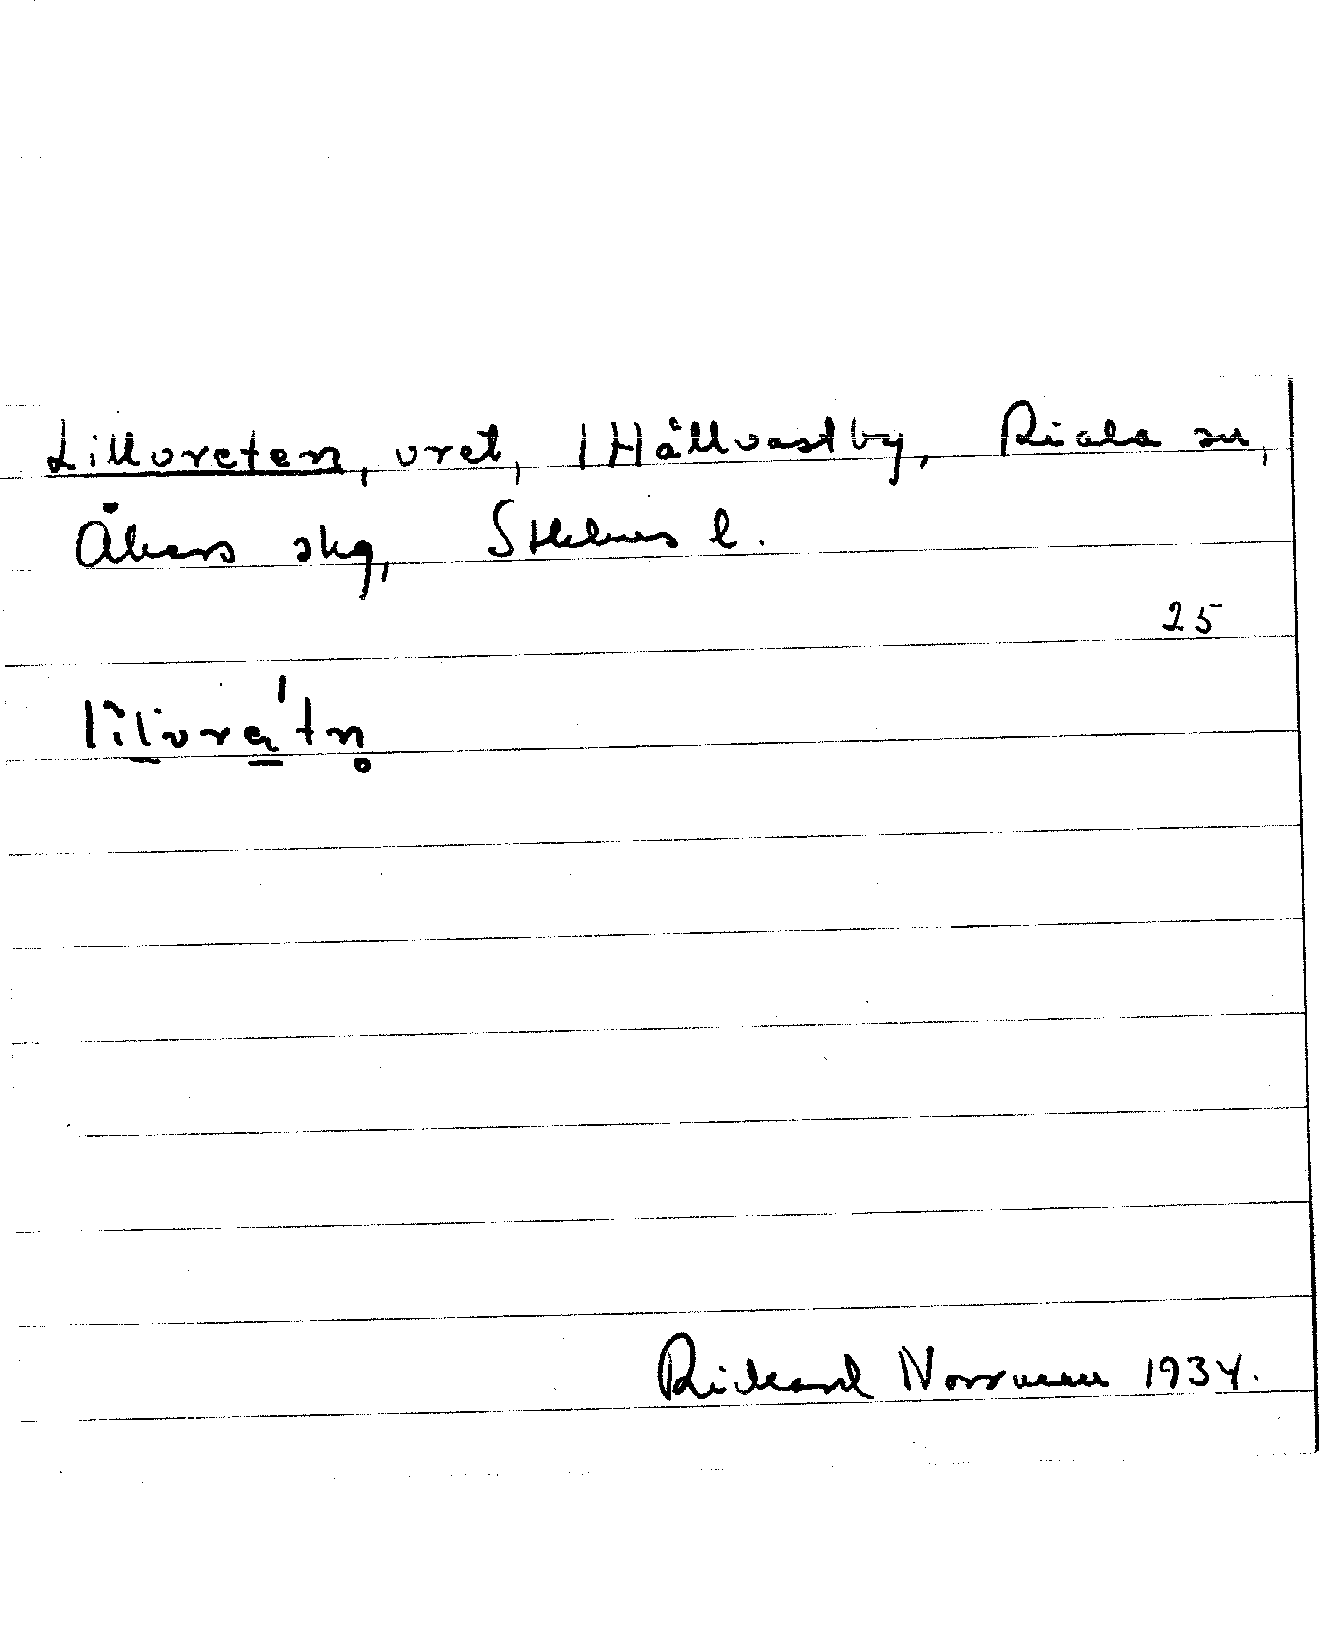 Lillvreten, vret, 1 Hållvastby, Riala sn,
Åkers skg, Sthlms l.
25
Rickard Norrman 1934.